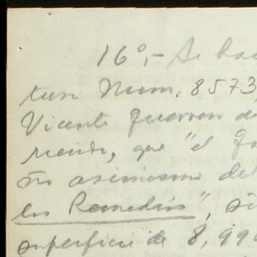 16°,- Se ha
tura Num. 8573
Vicente Guerrero de
que "el
ño asimismo del
los Remedios", si
superficie de 8,99